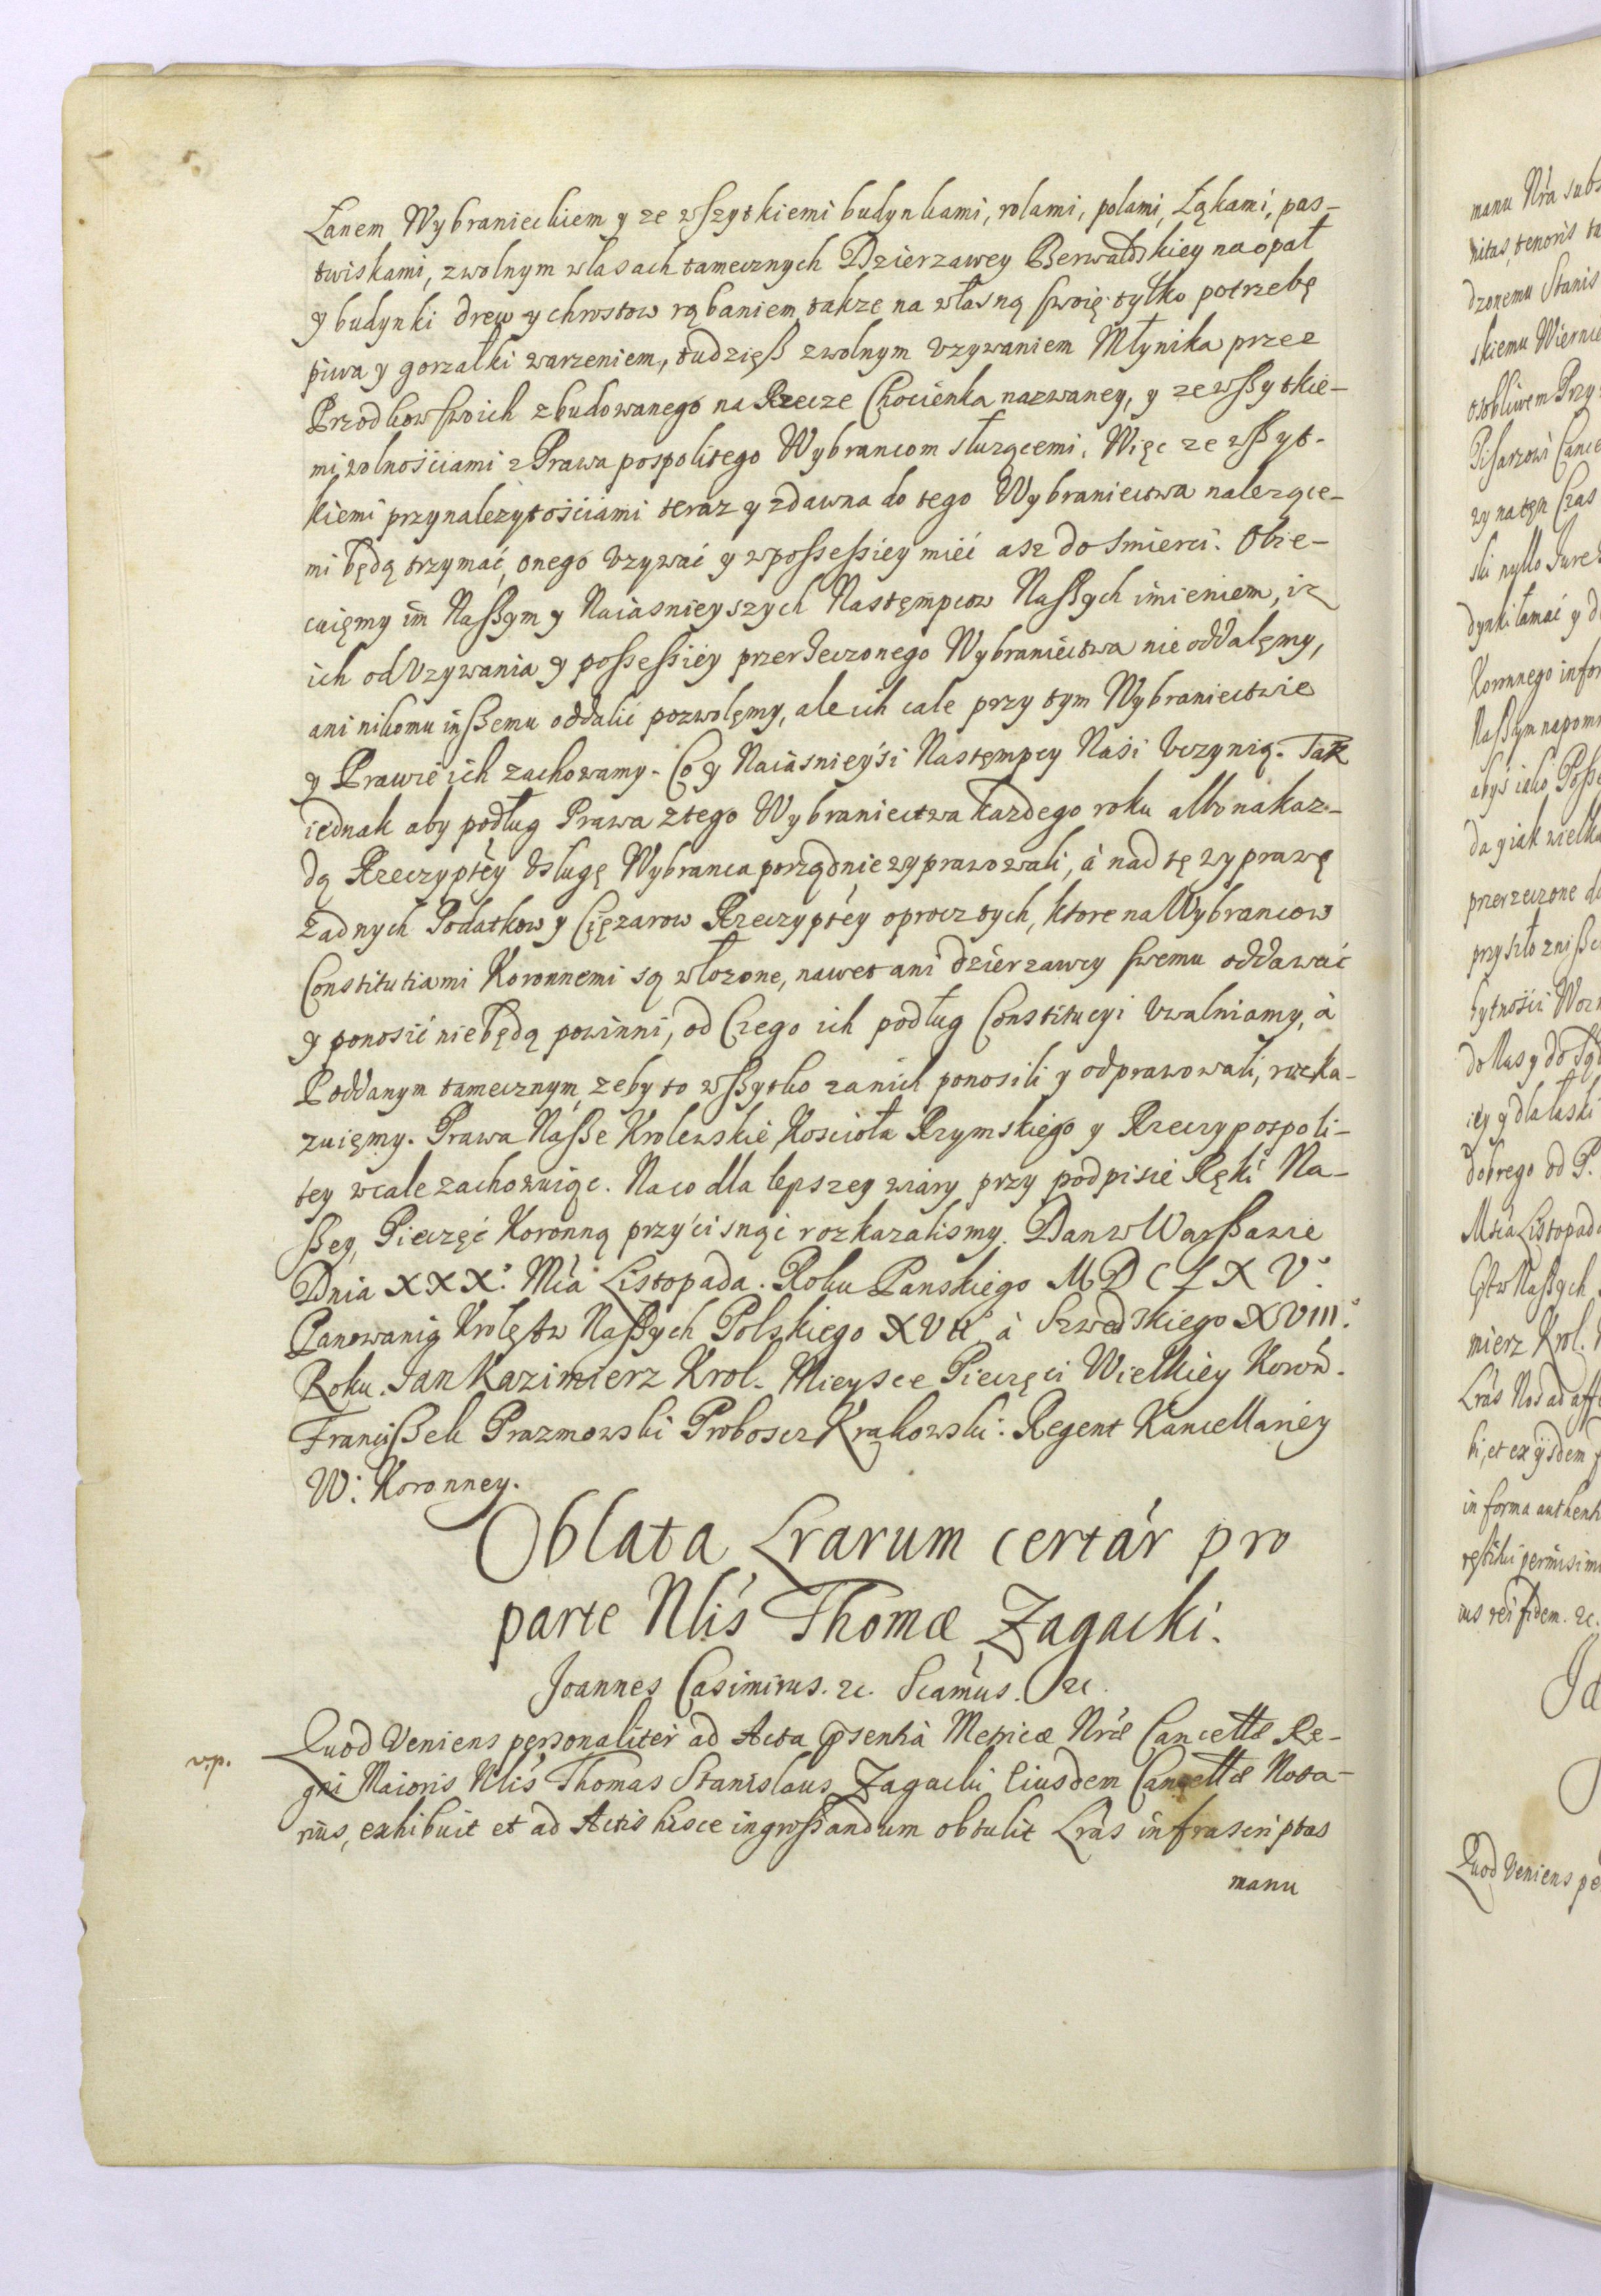 Łanem Wybranieckiem y ze wszytkiemi budynkami, rolami, polami, Łąkami, pas-
twiskami, z wolnym w lasach tamecznych Dzierzawey Berwałdskiey na opał
y budynki drew y chrostow rąbaniem, takze na własną swoię tylko potrzebę
piwa y gorzałki warzeniem, tudzięß z wolnym vzywaniem Młynika przez
Przodkow swoich zbudowanego na Rzecze Chocienka nazwaney, y ze wßytkie-
mi wolnościami z Prawa pospolitego Wybrancom słuzącemi. Więc ze wßyt-
kiemi przynalezytościami teraz y zdawna do tego Wybraniectwa nalezące-
mi będą trzymać, onego vzywać y w possessiey mieć asz do smierci. Obie-
cuięmy im̃ Naßym y Naiasnieyszych Następcow Naßych imieniem, iz
ich od vzywania y possessiey przerzeczonego Wybraniectwa nie oddalęmy,
ani nikomu inßemu oddalić pozwolęmy, ale ich cale przy tym Wybraniectwie
y Prawie ich zachowamy. Co y Naiasnieysi Nastempcy Nasi vczynią. Tak
iednak aby podług Prawa z tego Wybraniectwa kazdego roku albo na kaz-
dą Rzeczyptey vsługę Wybranca porządnie wyprawowali, à nad tę wyprawę
zadnych Podatkow y Cięzarow Rzeczyptey oprocz tych, ktore na Wybrancow
Constitutiami Koronnemi są włozone, nawet ani dzierzawcy swemu oddawać
y ponosić nie będą powinni, od Czego ich podług Constitucyi vwalniamy, à
Poddanym tamecznym, zeby to wßytko za nich ponosili y odprawowali, rozka-
zuięmy. Prawa Naße Krolewskie, Kościoła Rzymskiego y Rzeczypospoli-
tey wcale zachowuiąc. Na co dla lepszey wiary przy podpisie Ręki Na-
ßey, Pieczęć Koronną przycisnąć rozkazalismy. Dan w Warßawie
Dnia XXX. Mca Listopada. Roku Panskiego MDCLXV.
Panowania Krolęstw Naßych Polskiego XVII à Szwedskiego XVIII.
Roku. Jan Kazimierz Krol. Mieysce Pieczęci Wielkiey Koroñ.
Francißek Prazmowski Proboscz Krakowski: Regent Kancellariey
W: Koronney.
Oblata Lrarum certar pro
parte Nlis Thomæ Zagacki.
Joannes Casimirus. &c. Scamus. &c.
v.p.
Quod veniens personaliter ad Acta psentia Metricæ Nræ Cancellæ Re-
gni Maioris Nlis Thomas Stanislaus Zagacki Eiusdem Cancellæ Nota-
rius, exhibuit et ad Actis hisce ingrossandum obtulit Lras infrascriptas
manu
manu Nra subs
nitas, tenoris ta
dzonemu Stanis
skiemu
osobliwem Przy
Pisarzowi Cance
zy na tęn Czas
dynki łamać y d
Koronnego infor
Naßym napom
abyś iako Posse
da y iak wielka
przerzeczone do
bytności Wozn
do Nas y do Sąd
iey y dla łaski
dobrego od P.
Mca Listopada
Kstw Naßych
mierz Krol.
Lras Nos ad affe
ki, et ex ijsdem
in forma authenti
restitui permisimus
ius rei fidem. &c.
Quod veniens pe